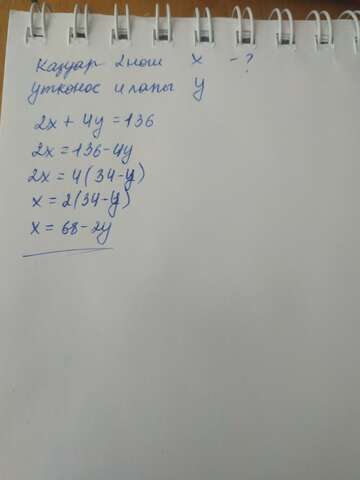 Казуар 2 ноги x - ?
Утконос 4 лапы y
2x + 4y = 136
2x = 136 - 4y
2x = 4(34 - y)
x = 2(34 - y)
x = 68 - 2y